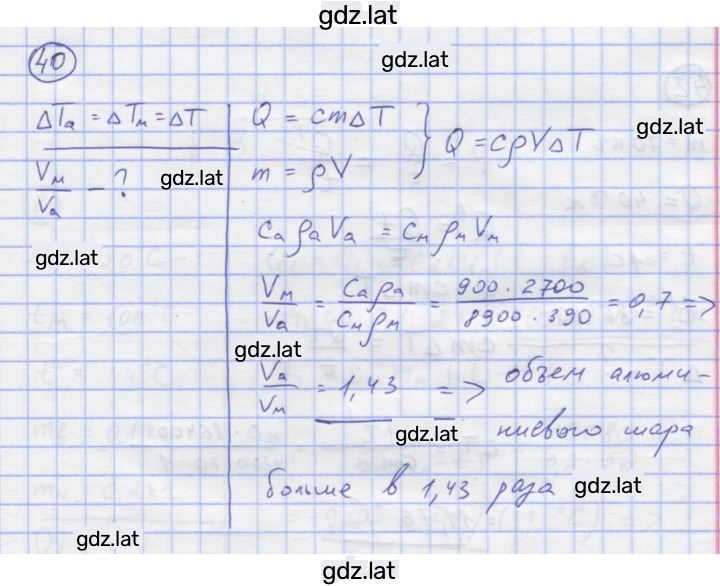 gdz.lat
40
gdz.lat
ΔTа = ΔTм = ΔT
Vм/Vа - ?
gdz.lat
gdz.lat
Q = cmΔT
m = ρV
} Q = cρVΔT
gdz.lat
cаρаVа = cмρмVм
Vм/Vа = cаρа/cмρм = 900 · 2700/8900 · 390 = 0,7 =>
gdz.lat
Vа/Vм = 1,43 => объем алюми-
gdz.lat
ниевого шара
больше в 1,43 раза
gdz.lat
gdz.lat
gdz.lat